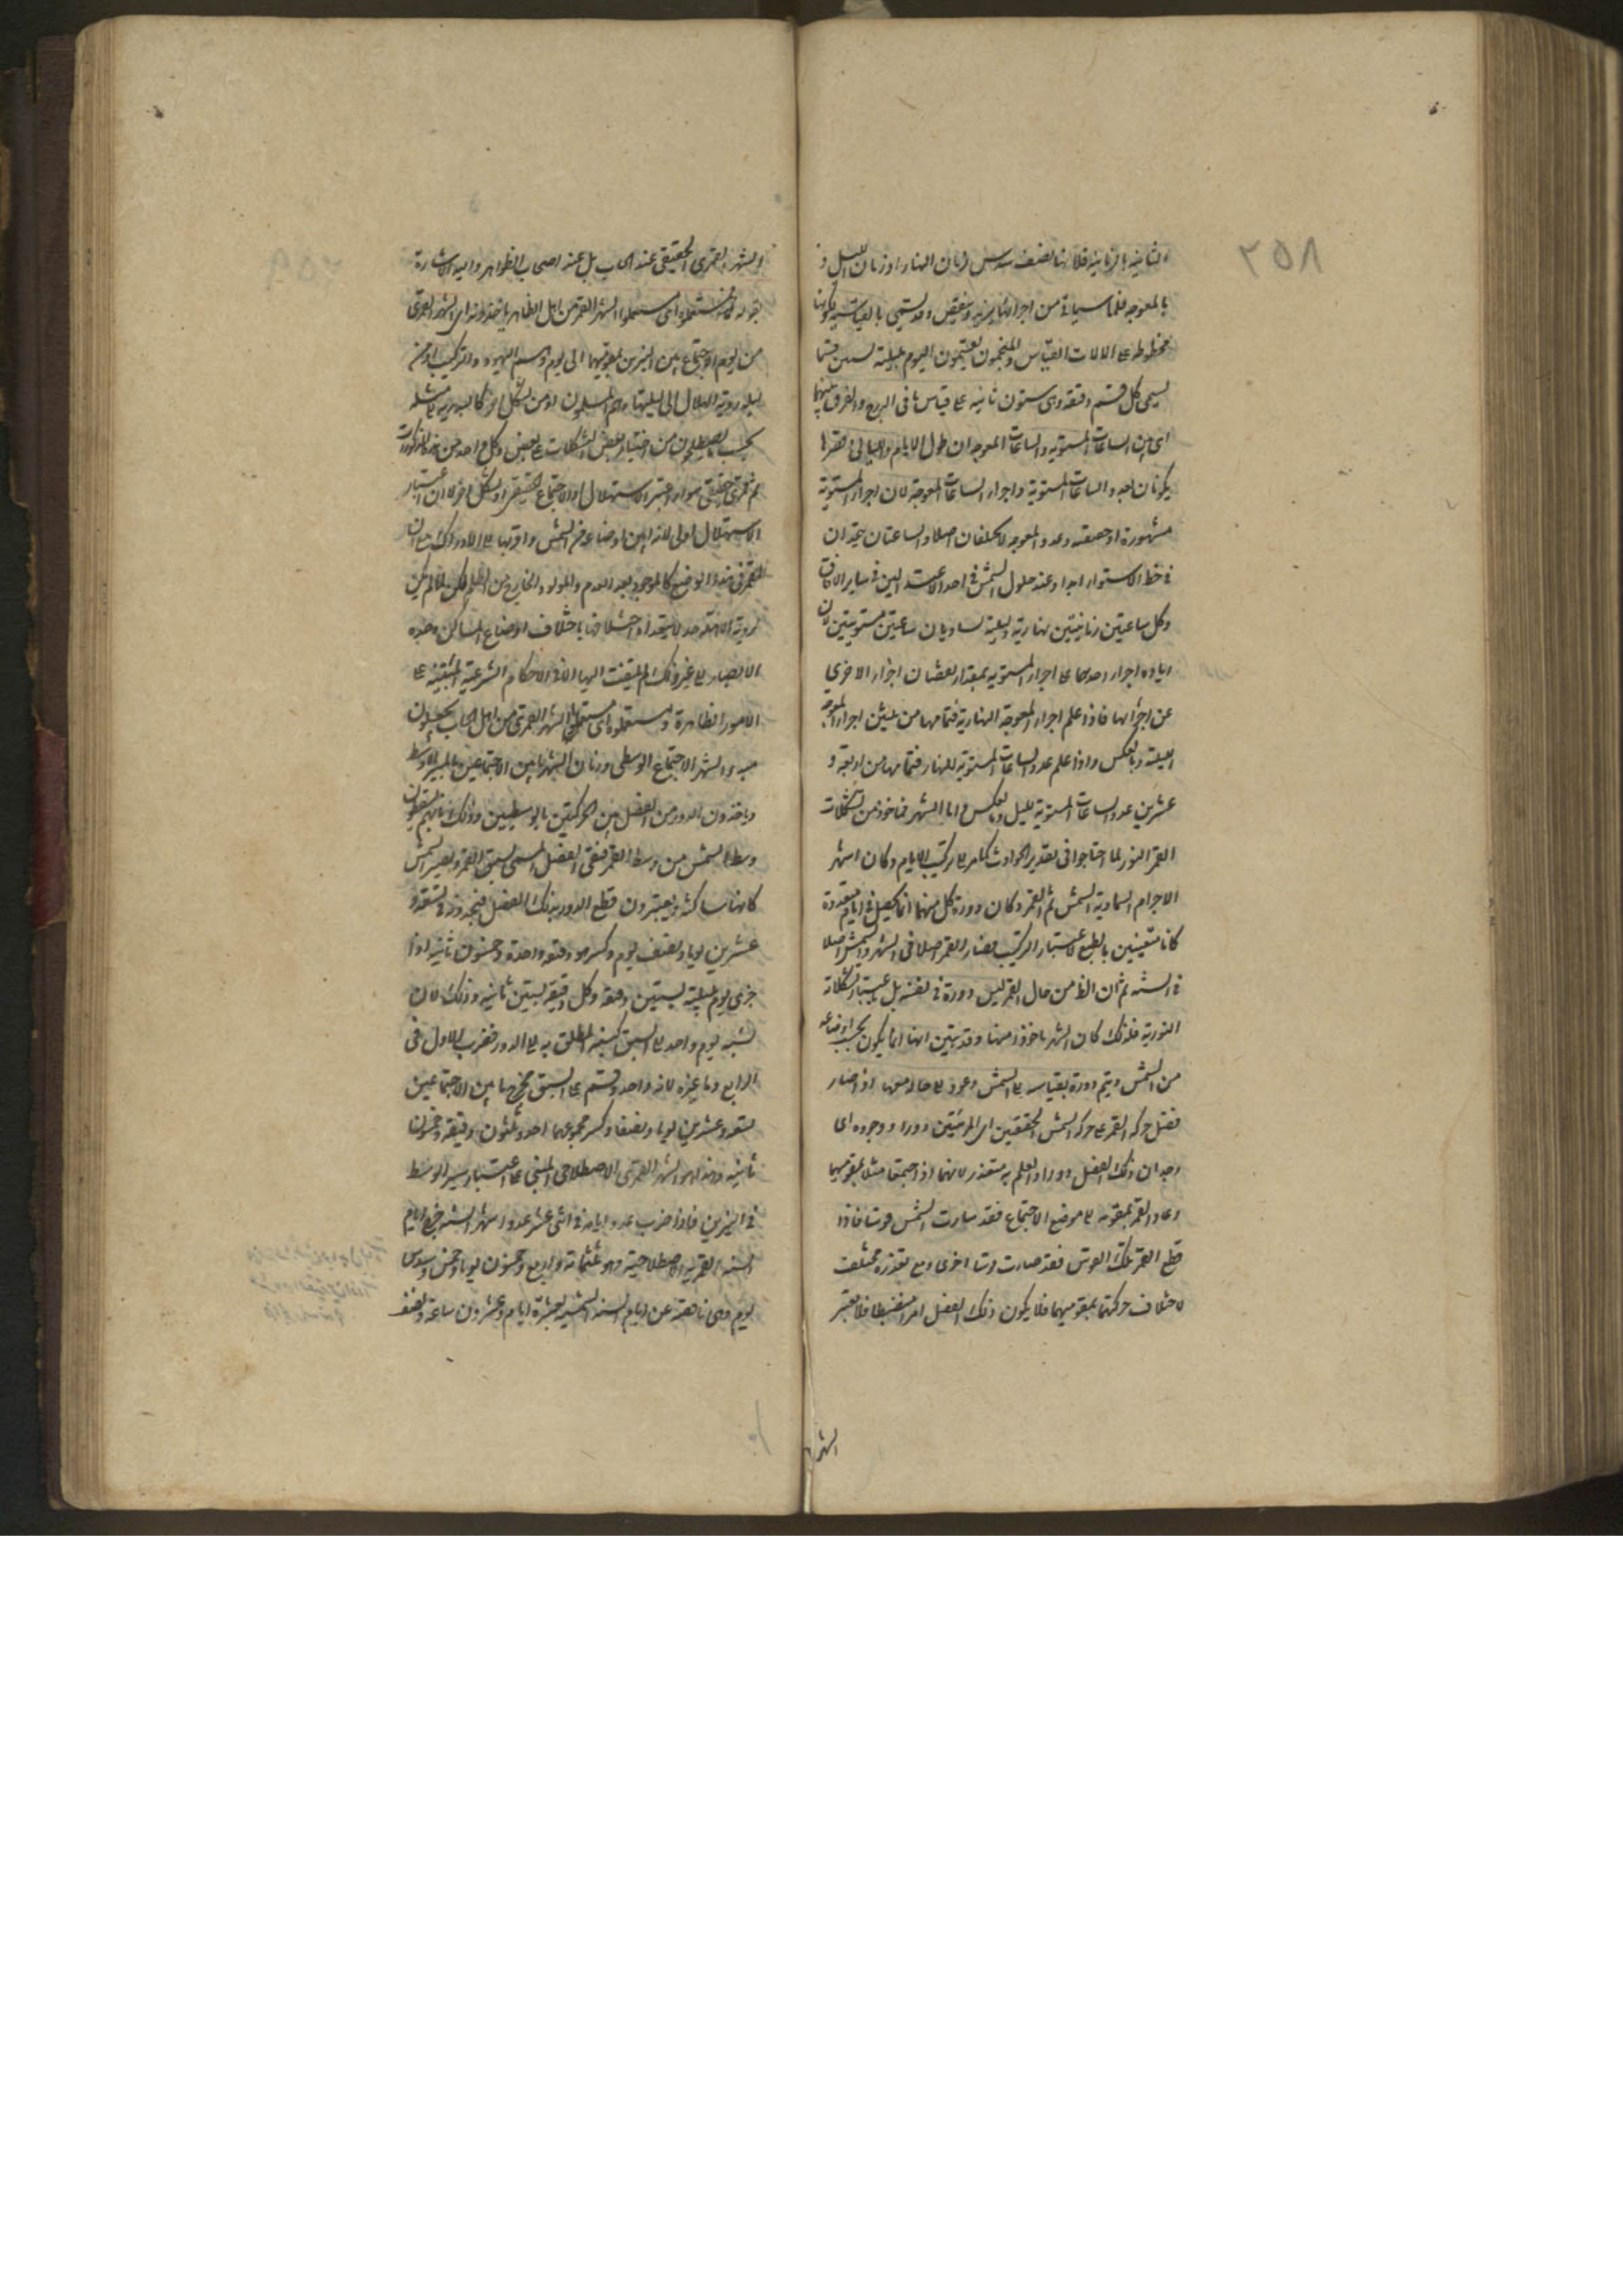 ٢٥٨
الثانية بالزمانية فلانها نصف سدس زمان النهار او زمان الليل و
بالمعوجة فلما سيأتى من اجزائها يزيد وينقص وقد تسمى بالقياسية لكونها
مخطوطة على الالات القياس والمنجمون يقسمون اليوم بليلته ستين قسما
يسمى كل قسم دقيقة وهى ستون ثانية على قياس ما فى البروج والفرق بينهما
اى بين الساعات المستوية والساعات المعوجة ان طول الايام والليالى وقصرها
يكونان بعدد الساعات المستوية واجزاء الساعات المعوجة لان اجزاء المستوية
مشهورة او حقيقة وعدد المعوجة لا يختلفان اصلا والساعتان تتحدان
فى خط الاستواء ابدا وعند حلول الشمس فى احد الاعتدالين فى ساير الافاق
وكل ساعتين زمانيتين نهارية وليلية تساويان ساعتين مستويتين لان
زيادة اجزاء احدهما على اجزاء المستوية بمقدار نقصان اجزاء الاخرى
عن اجزائها فاذا علم اجزاء المعوجة النهارية فتمامها من ثلثين اجزاء المعوجة
الليلية وبالعكس واذا علم عدد الساعات المستوية للنهار فتمامها من اربعة و
عشرين عدد الساعات المستوية لليل وبالعكس واما الشهر فماخوذ من تشكلات
القمر النورية لما احتاجوا فى تقدير الحوادث كما مر الى تركيب الايام وكان اشهر
الاجرام السماوية الشمس ثم القمر وكان دورة كل منهما انما يحصل فى ايام متعددة
كانا متعينين بالطبع لاعتبار التركيب فصار القمر اصلا فى الشهر والشمس اصلا
فى السنة ثم ان الظ من حال القمر ليس دورة فى نفسه بل باعتبار تشكلاته
النورية فلذلك كان الشهر ماخوذا منها وقد تبين انها انما يكون بحسب اوضاعه
من الشمس ويتم دورة بقياسه الى الشمس وعوده الى حاله منها اذا صار
فضل حركة القمر على حركة الشمس الحقيقتين اى المرئيتين دورا ووجوده اى
وجدان ذلك الفضل دورا والعلم به متعذر لانهما اذا اجتمعا مثلا بتقويميهما
وعاد القمر بتقويمه الى موضع الاجتماع فقد سارت الشمس قوسا فاذا
قطع القمر تلك القوس فقد صارت قوسا اخرى ومع تعذره مختلف
لاختلاف حركتهما بتقويميهما فلا يكون ذلك الفضل امرا منضبطا فلا يعتبر
الشهر
والشهر القمرى الحقيقى عند الحساب بل عند اصحاب الظواهر واليه الاشارة
بقوله فمستعملوه اى مستعملوا الشهر القمرى من اهل الظاهر ياخذونه اى الشهر القمرى
من يوم الاجتماع بين النيرين بتقويميهما الى يوم وهم اليهود والترك او من
ليلة روية الهلال الى ليلتها وهم المسلمون او من شكل اخر كالبدرية الى مثله
بحسب ما يصطلحون من اختيار بعض التشكلات على بعض وكل واحد من هذه المذكورات
شهر قمرى حقيقى سواء اعتبر الاستهلال او الاجتماع الحقيقى او شكل اخر الا ان اعتبار
الاستهلال اولى لانه ابين اوضاعه من الشمس واقربها الى الادراك
القمر فى هذا الوضع كالموجود بعد العدم والمولود والخارج من الظلم لكن لما لم يكن
لروية الاهلة حد لا يتعداه لاختلافها باختلاف اوضاع المساكن وحدة
الابصار الى غير ذلك لم يلتفت اليها الا فى الاحكام الشرعية المبتنية على
الامور الظاهرة ومستعملوه اى مستعملوا الشهر القمرى من اهل الحساب يجعلون
مبدء الشهر الاجتماع الوسطى وزمان الشهر ما بين الاجتماعين بالمسير الاوسط
وياخذون الدور من الفضل بين الحركتين بالوسطيين وذلك بانهم يسقطون
وسط الشمس من وسط القمر فبقى الفضل المسمى بسبق القمر وتصير الشمس
كانها ساكنة ويعتبرون قطع الدور بذلك الفضل فيجدونه فى تسعة و
عشرين يوما ونصف يوم وكسر هو دقيقة واحدة وخمسون ثانية اذا
جزى يوم بليلته بستين دقيقة وكل دقيقة بستين ثانية وذلك لان
نسبة يوم واحد الى السبق كنسبة المطلوب الى الدور فضرب الاول فى
الرابع وما غيره لانه واحد وقسم على السبق فخرج ما بين الاجتماعين
تسعة وعشرين يوما ونصفا وكسر مجموعهما احد وثلثون دقيقة وخمسون
ثانية وهذا هو الشهر القمرى الاصطلاحى المبنى على اعتبار سير الوسط
فى النيرين فاذا ضرب عدد ايامه فى اثنى عشر عدد اشهر السنة خرج ايام
السنة القمرية الاصطلاحية وهو ثلثمائة واربع وخمسون يوما وخمس وسدس
يوم وهى ناقصة عن ايام السنة الشمسية بعشرة ايام وعشرون ساعة ونصف